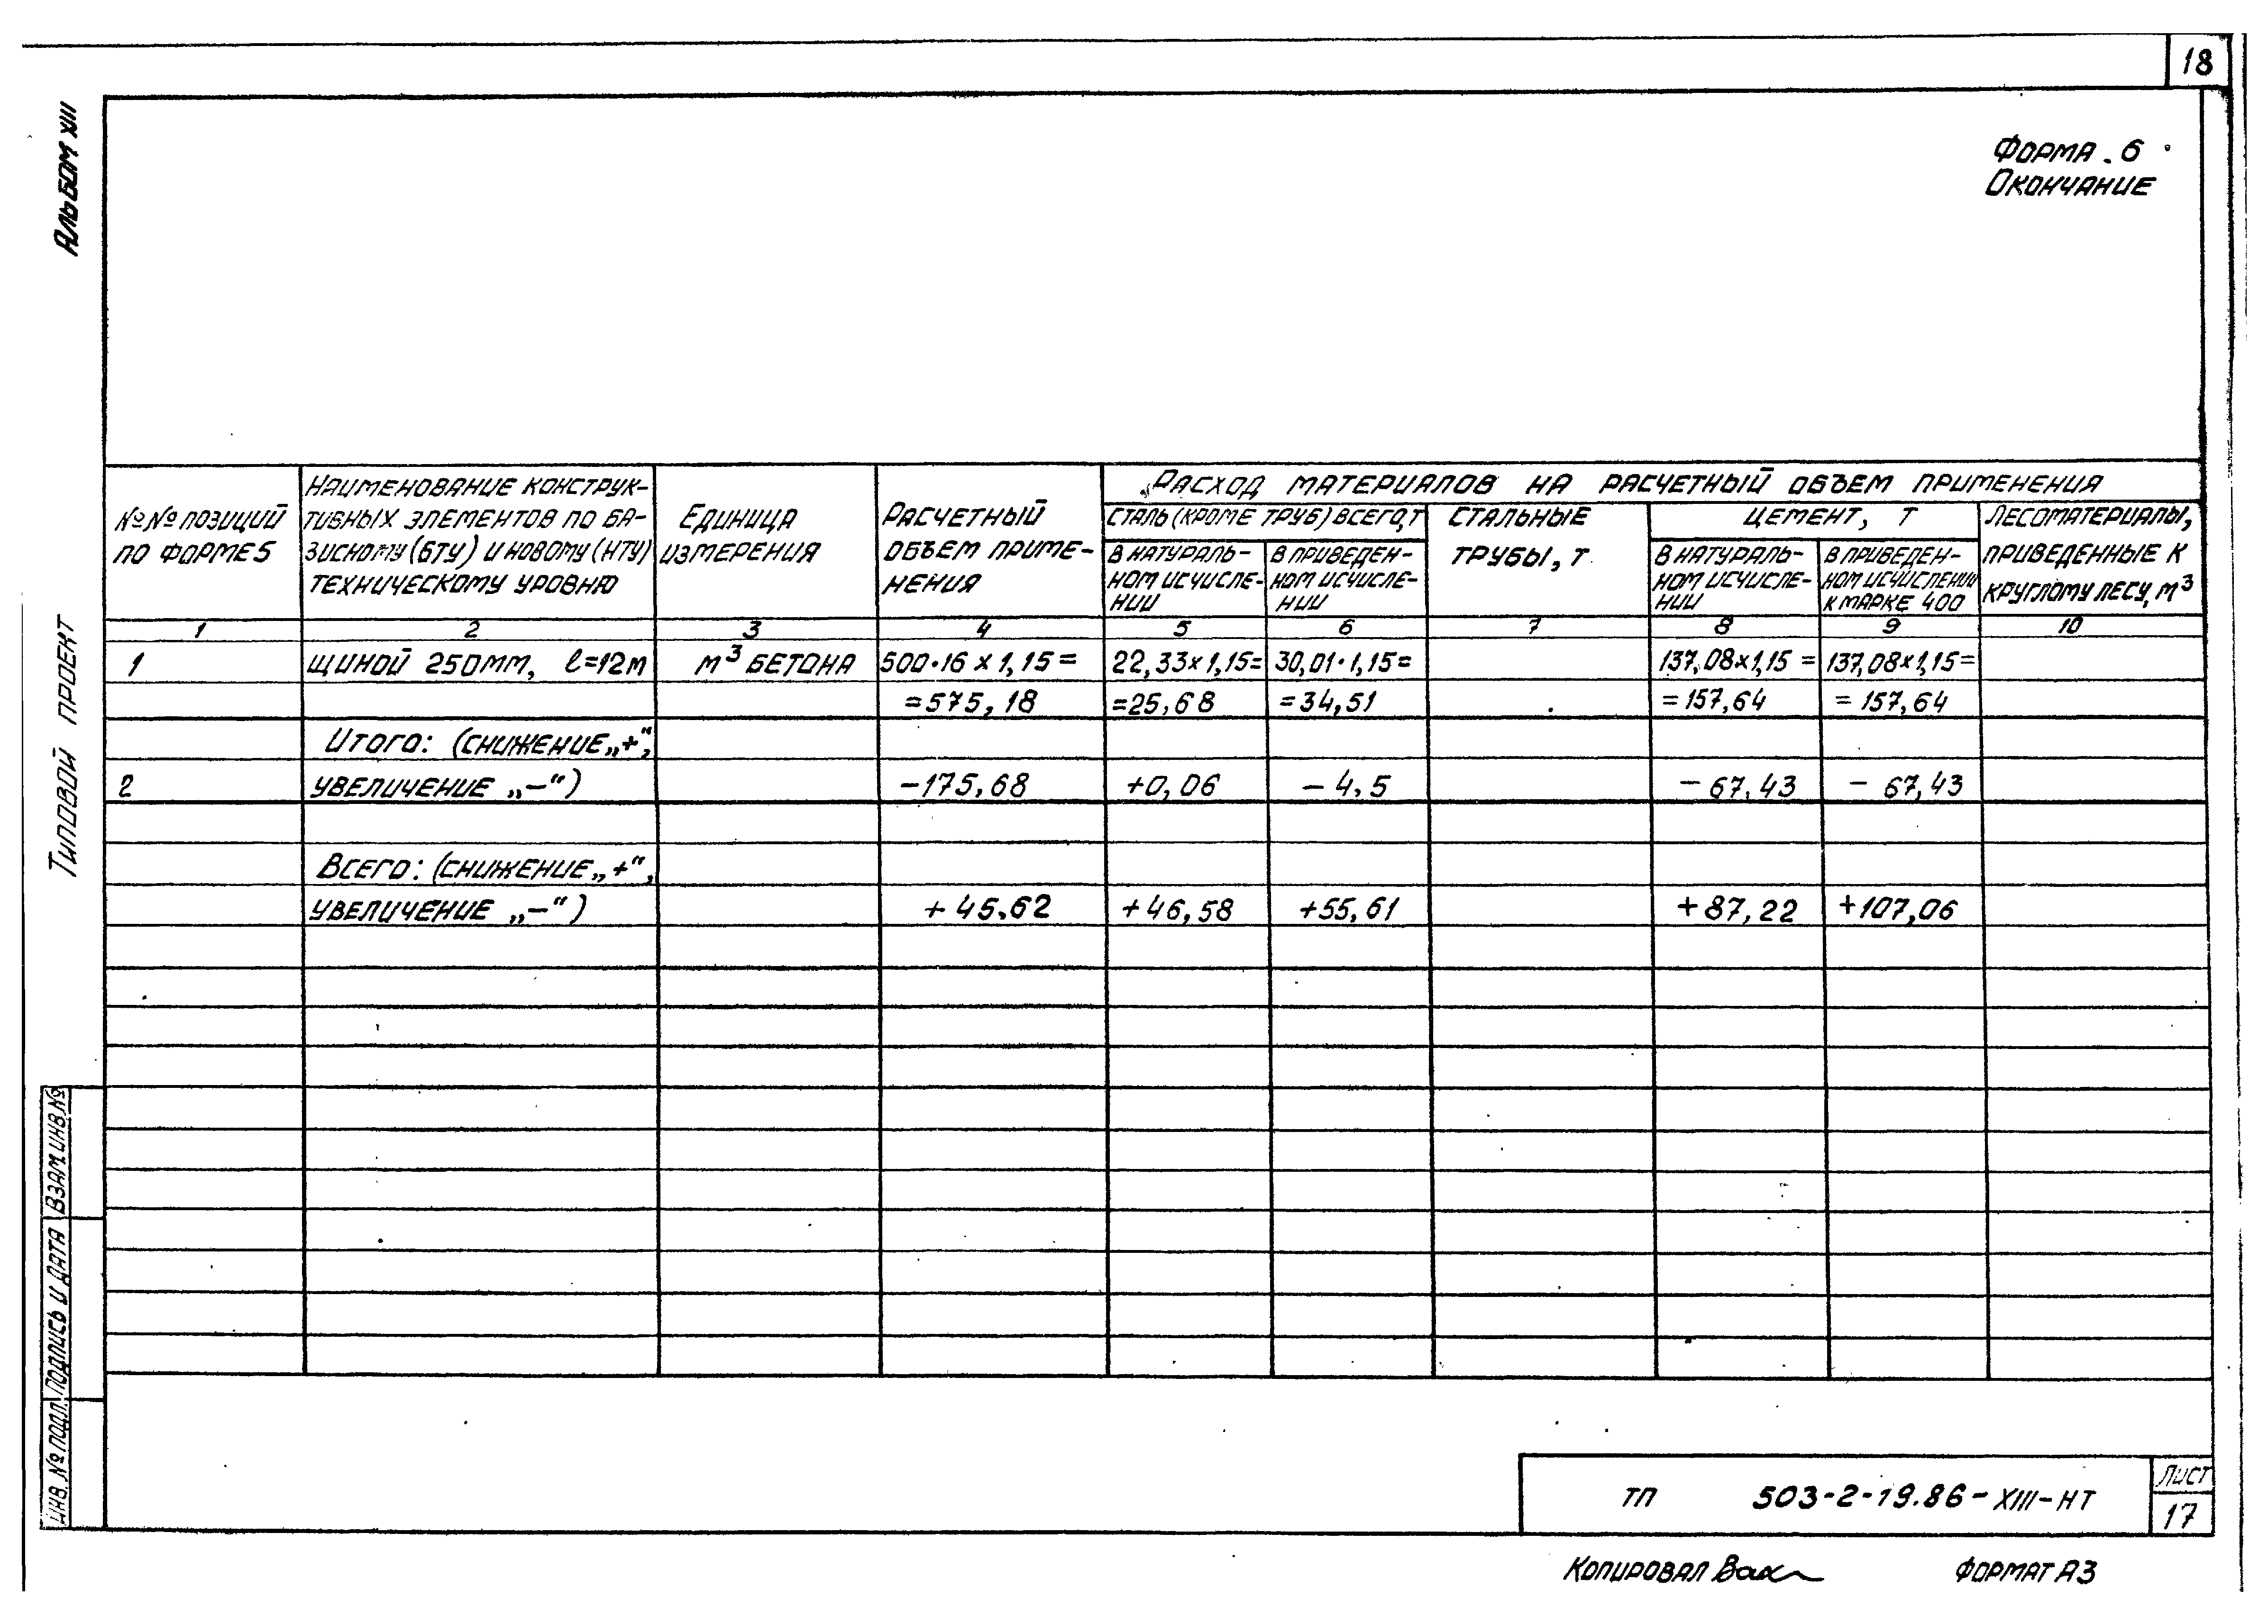 18
Альбом XIII
Форма . 6
Окончание
№№ позиций
по форме 5
Наименование конструк-
тивных элементов по ба-
зисному (БТУ) и новому (НТУ)
техническому уровню
Единица
измерения
Расчетный
объем приме-
нения
Расход материалов на расчетный объем применения
Сталь (кроме труб) всего, т
в натураль-
ном исчисле-
нии
в приведен-
ном исчисле-
нии
Стальные
трубы, т.
Цемент, т
в натураль-
ном исчисле-
нии
в приведен-
ном исчислении
к марке 400
Лесоматериалы,
приведенные к
круглому лесу, м³
1 2 3 4 5 6 7 8 9 10
1 щиной 250мм, l=12м м³ бетона 500·16 x 1,15= 22,33x1,15= 30,01·1,15= 137,08x1,15= 137,08x1,15=
=575,18 =25,68 =34,51 =157,64 =157,64
Итого: (снижение „+“,
2 увеличение „–“) –175,68 +0,06 –4,5 –67,43 –67,43
Всего: (снижение „+“,
увеличение „–“) +45,62 +46,58 +55,61 +87,22 +107,06
Типовой проект
Взам инв №
Подпись и дата
Инв. № подл.
ТП 503-2-19.86-XIII-НТ
Лист
17
Копировал
Формат А3